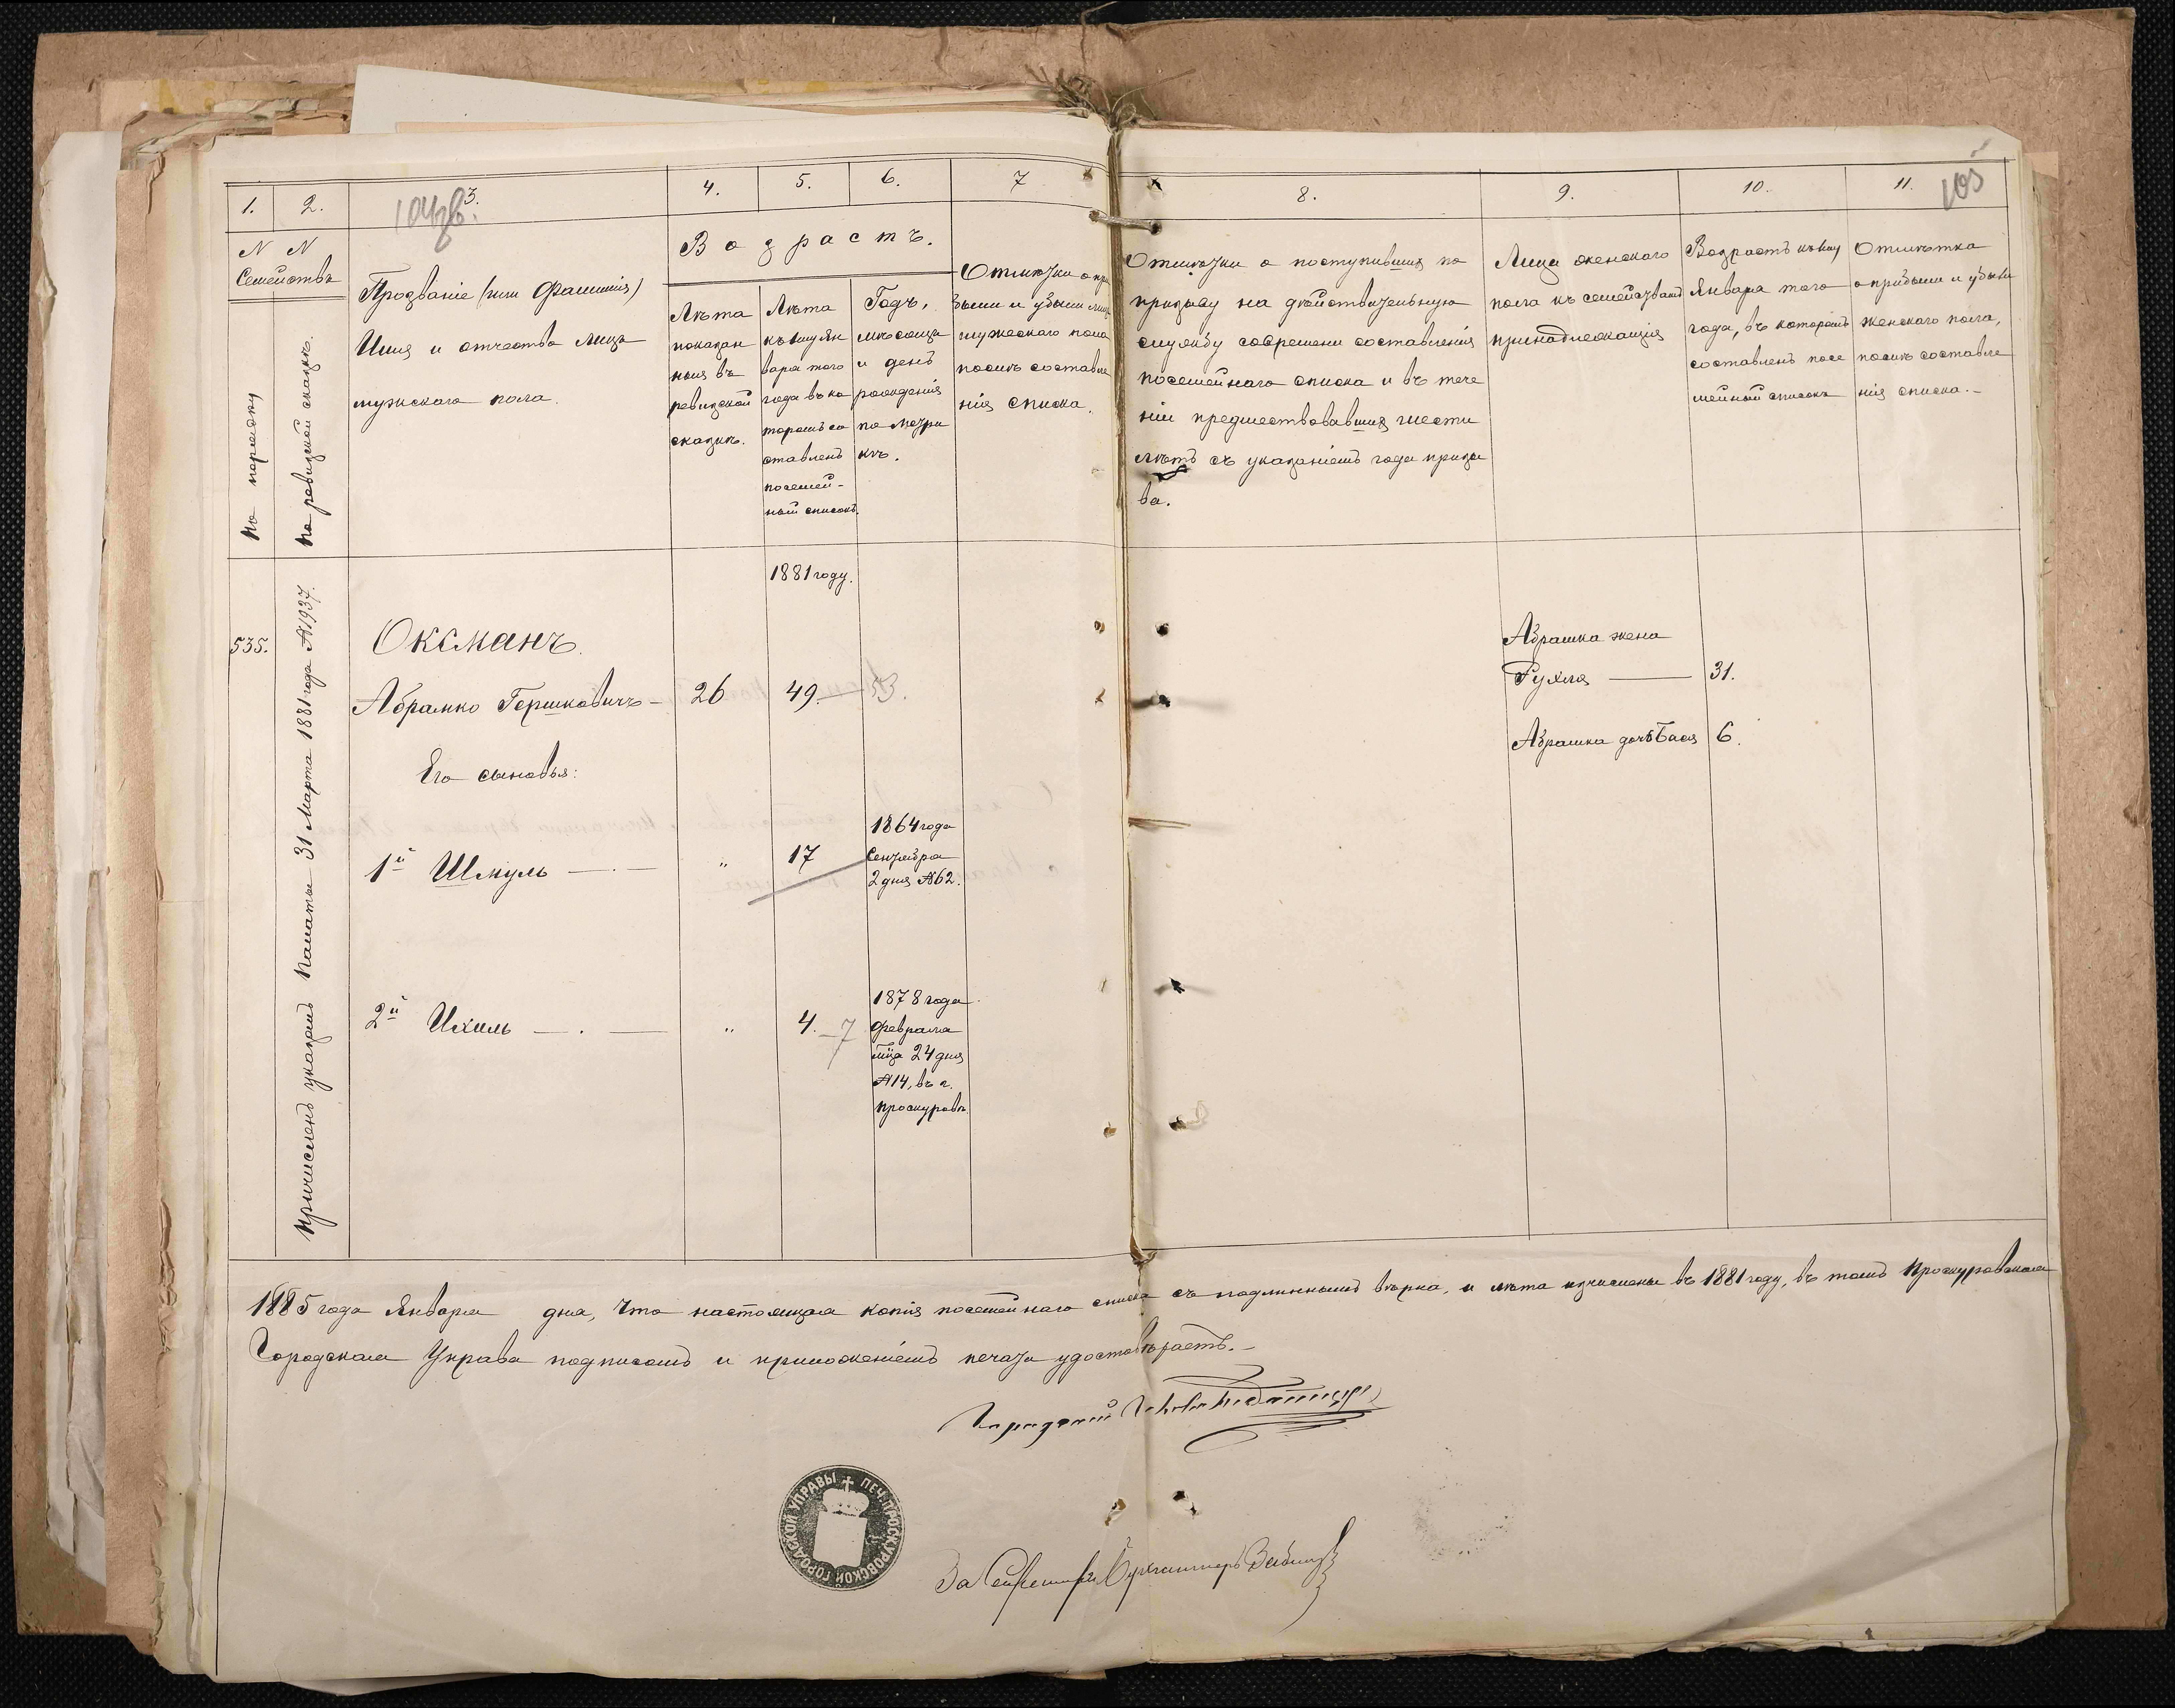 1.
2.
3.
4.
5.
6.
7
8.
9.
10.
11.
105
N N
Семействъ
По порядку
По ревизской сказкѣ.
Прозваніе (или Фамилія)
Имя и отчество лицъ
мужскаго пола.
Возрастъ.
Лѣта
показан
ныя въ
ревизской
сказкѣ.
Лѣта
къ 1му Ян
варя того
года въ ко
торомъ со
ставленъ
посемей-
ный списокъ.
Годъ,
мѣсяцъ
и день
рожденія
по метри
кѣ.
Отмѣтки о при
были и убыли лицъ
мужескаго пола
послѣ составле
нія списка.
Отмѣтки о поступившихъ по
призыву на дѣйствительную
службу со времени составленія
посемейнаго списка и въ тече
ніи предшествовавшихъ шести
лѣтъ съ указаніемъ года призы
ва.
Лица женскаго
пола къ семейству
принадлежащія
Возрастъ къ 1му
Января того
года, въ которомъ
составленъ посе
мейный списокъ
Отмѣтка
о прибыли и убыли
женскаго пола,
послѣ составле
нія списка.-
1881 году.
535.
Причисленъ указомъ Палаты 31 Марта 1881 года №1937.
Оксманъ.
Абрамко Гершковичъ - 26 49. - 53.
Его сыновья:
1й Шмуль - . - " 17
1864 года
Сентября
2 дня №62.
2й Ихиль - . - " 4. - 7
1878 года
Февраля
мца 24 дня
№14, въ г.
Проскуровѣ.
Абрамка жена
Рухля - 31.
Абрамка дочь Бася 6.
1885 года Января дня, что настоящая копія посемейнаго списка съ подлиннымъ вѣрна, и лѣта изчислены въ 1881 году, въ томъ Проскуровская
Городская Управа подписомъ и приложеніемъ печати удостовѣряетъ.-
Городской Голова
ПЕЧ. ПРОСКУРОВСКОЙ ГОРОДСКОЙ УПРАВЫ
За Секретаря Бухгалтеръ